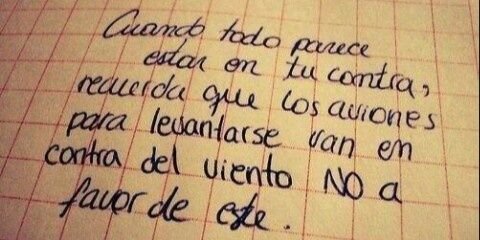 Cuando todo parece
estar en tu contra,
recuerda que los aviones
para levantarse van en
contra del viento NO a
favor de este.